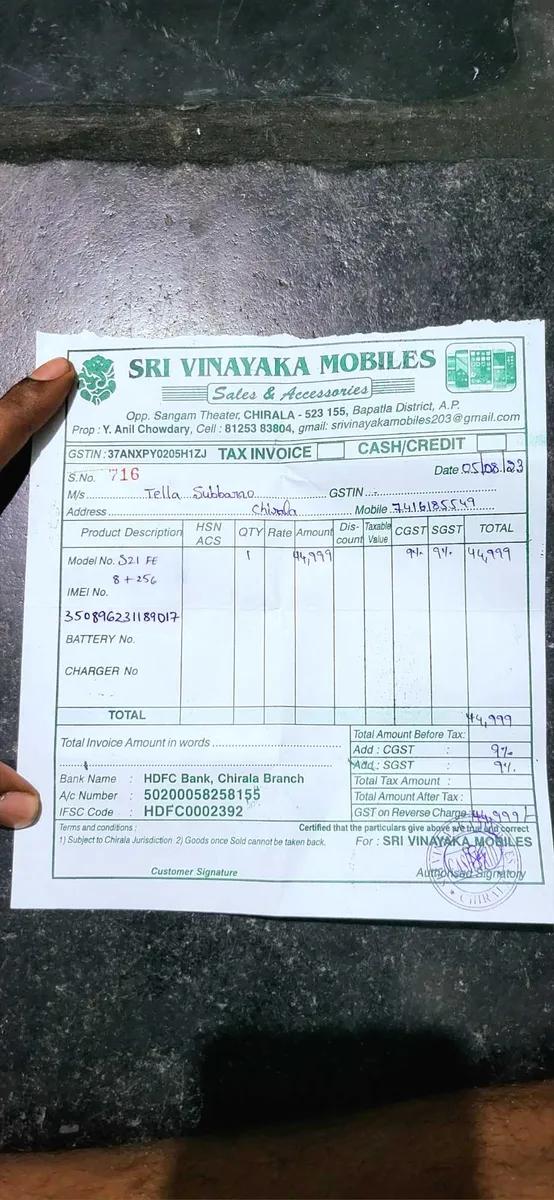 SRI VINAYAKA MOBILES
Sales & Accessories
Opp. Sangam Theater, CHIRALA - 523 155, Bapatla District, A.P.
Prop : Y. Anil Chowdary, Cell : 81253 83804, gmail: srivinayakamobiles203@gmail.com
GSTIN : 37ANXPY0205H1ZJ TAX INVOICE CASH/CREDIT
S.No. 716 Date 05/08/23
M/s Tella Subbarao GSTIN
Address Chirala Mobile 7416135549
Product Description HSN ACS QTY Rate Amount Discount Taxable Value CGST SGST TOTAL
Model No. S21 FE 1 44,999 9% 9% 44,999
8 + 256
IMEI No.
350896231189017
BATTERY No.
CHARGER No
TOTAL 44,999
Total Invoice Amount in words
Total Amount Before Tax:
Add : CGST : 9%
Add : SGST : 9%
Total Tax Amount :
Total Amount After Tax :
GST on Reverse Charge 44,999/-
Bank Name : HDFC Bank, Chirala Branch
A/c Number : 50200058258155
IFSC Code : HDFC0002392
Terms and conditions : Certified that the particulars give above are true and correct
1) Subject to Chirala Jurisdiction 2) Goods once Sold cannot be taken back.
For : SRI VINAYAKA MOBILES
Customer Signature Authorised Signatory